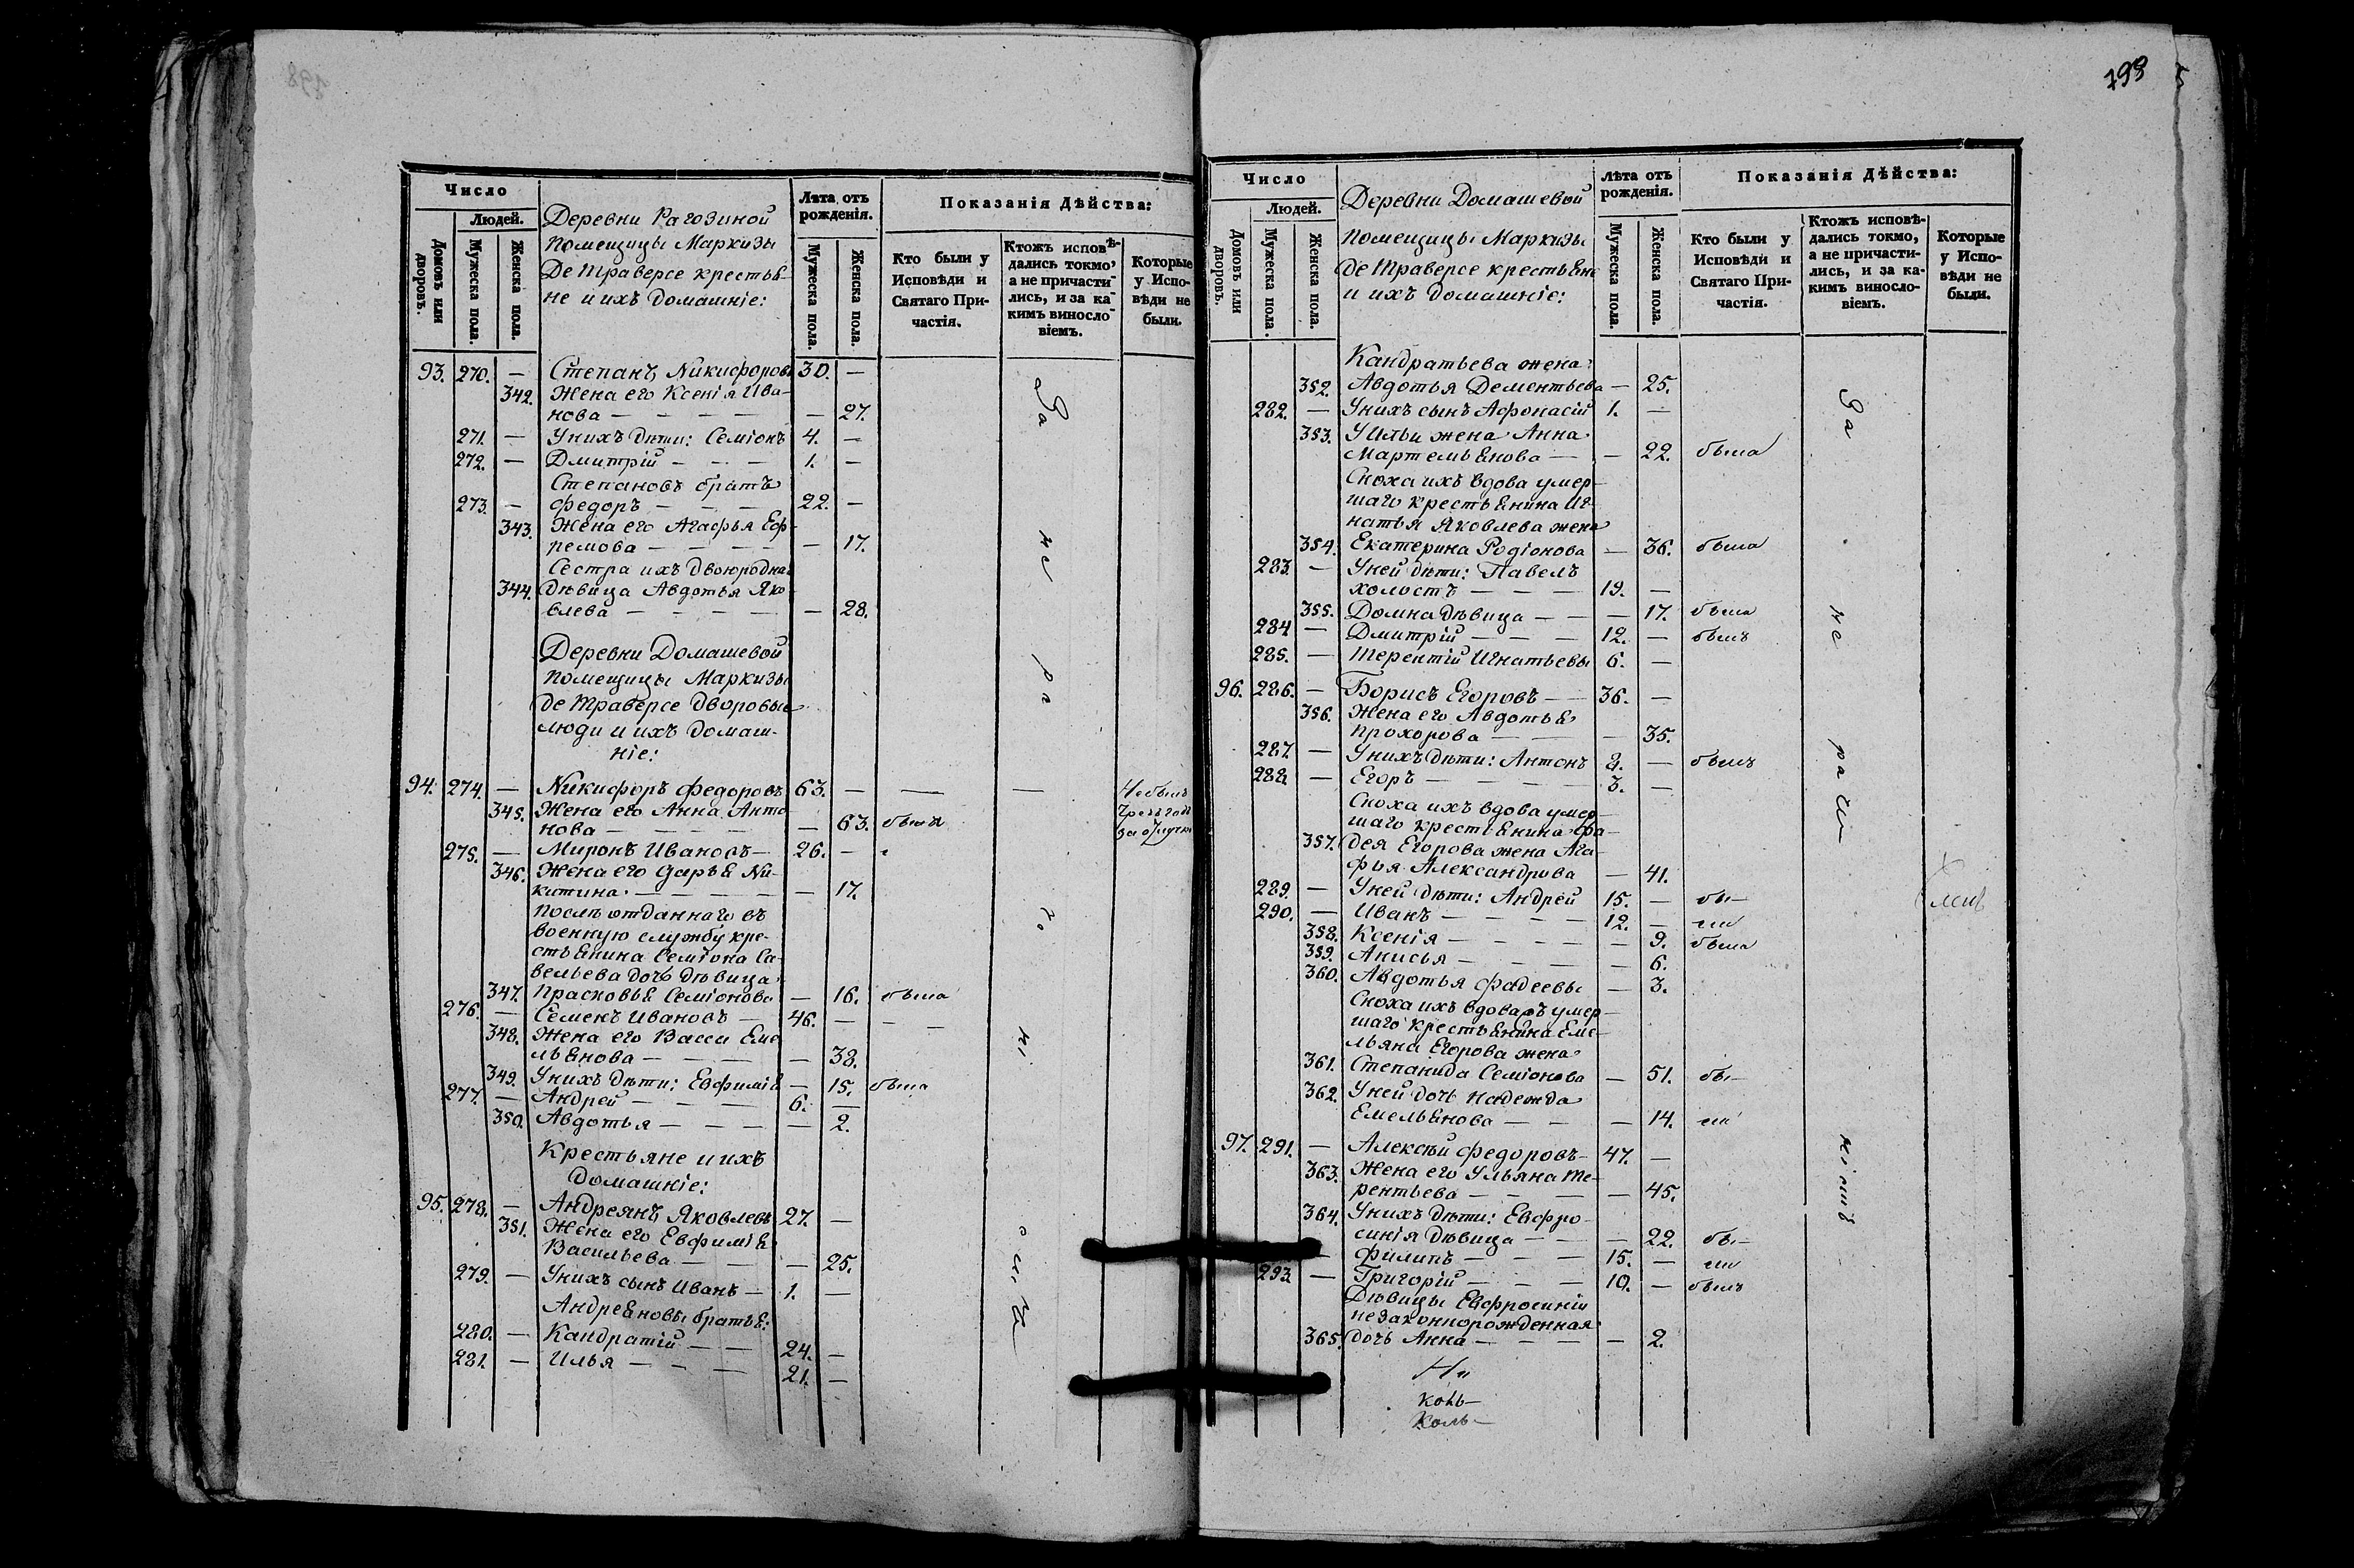 198
Число
Людей.
Домовъ или дворовъ.
Мужеска пола.
Женска пола.
Деревни Рагозиной
помещицы Маркизы
де Траверсе крестья-
не и ихъ домашніе:
Лѣта отъ рожденія.
Мужеска пола.
Женска пола.
Показанія Дѣйства:
Кто были у Исповѣди и Святаго Причастія.
Ктожъ исповѣдались токмо, а не причастились, и за какимъ винословіемъ.
Которые у Исповѣди не были.
93. 270. — Степанъ Никифоровъ 30. —
342. Жена его Ксенія Ива-
нова — — 27.
271. — У нихъ дѣти: Семіонъ 4. —
272. — Дмитрій — 1. —
Степановъ братъ
273. — Федоръ — 22. —
343. Жена его Агафья Еф-
ремова — — 17.
Сестра ихъ двоюродная
344. дѣвица Авдотья Яко-
влева — — 28.
Деревни Домашевой
помещицы Маркизы
де Траверсе дворовые
люди и ихъ домаш-
ніе:
94. 274. — Никифоръ Федоровъ 63. — — — Небылъ
345. Жена его Анна Анто-
нова — — 63. была
275. — Миронъ Ивановъ — 26. —
346. Жена его Дарья Ни-
китина — — 17.
После отданнаго въ
военную службу кре-
стьянина Семіона Са-
вельева дочь дѣвица
347. Прасковья Семіонова — 16. была
276. — Семенъ Ивановъ — 46. —
348. Жена его Васса Еме-
льянова — — 38.
349. У нихъ дѣти: Евфимія — 15. была
277. — Андрей — 6. —
350. Авдотья — — 2.
Крестьяне и ихъ
домашніе:
95. 278. — Андреянъ Яковлевъ 27. —
351. Жена его Евфимія
Васильева — — 25.
279. — У нихъ сынъ Иванъ — 1. —
Андреяновы братья:
280. — Кандратій — 24. —
281. — Илья — 21. —
За
не
198
Число
Людей.
Домовъ или дворовъ.
Мужеска пола.
Женска пола.
Деревни Домашевой
помещицы Маркизы
де Траверсе крестьяне
и ихъ домашніе:
Лѣта отъ рожденія.
Мужеска пола.
Женска пола.
Показанія Дѣйства:
Кто были у Исповѣди и Святаго Причастія.
Ктожъ исповѣдались токмо, а не причастились, и за какимъ винословіемъ.
Которые у Исповѣди не были.
Кандратьева жена
352. Авдотья Дементьева — 25.
282. — У нихъ сынъ Афонасій 1. —
353. У Ильи жена Анна
Мартемьянова — — 22. была
Сноха ихъ вдова умер-
шаго крестьянина Иг-
натья Яковлева жена
354. Екатерина Родіонова — 36. была
283. — У ней дѣти: Павелъ
холостъ — 19. —
355. Домна дѣвица — — 17. была
284 — Дмитрій — 12. — былъ
285. — Терентій Игнатьевы 6. —
96. 286. — Борисъ Егоровъ — 36. —
356. Жена его Авдотья
Прохорова — — 35.
287. — У нихъ дѣти: Антонъ 8. — былъ
288. — Егоръ — 3. —
Сноха ихъ вдова умер-
шаго крестьянина Фа-
357. дея Егорова жена Ага-
фья Александрова — 41.
289. — У ней дѣти: Андрей 15. — бы-
290. — Иванъ — 12. — ли
358. Ксенія — — 9. была
359. Анисья — — 6.
360. Авдотья Фадеевы — 3.
Сноха ихъ вдова умер-
шаго крестьянина Еме-
льяна Егорова жена
361. Степанида Семіонова — 51. бы-
362. У ней дочь Надежда
Емельянова — — 14. ли
97. 291. — Алексѣй Федоровъ — 47. —
363. Жена его Ульяна Те-
рентьева — — 45.
364. У нихъ дѣти: Евфро-
синія дѣвица — — 22. бы-
— Филипъ — 15. — ли
293. — Григорій — 10. — былъ
Дѣвицы Евфросиніи
незаконнорожденная
365. дочь Анна — — 2.
За
не